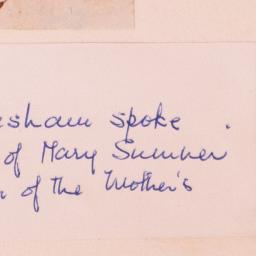 esham spoke.
of Mary Sumner
of the Mother's